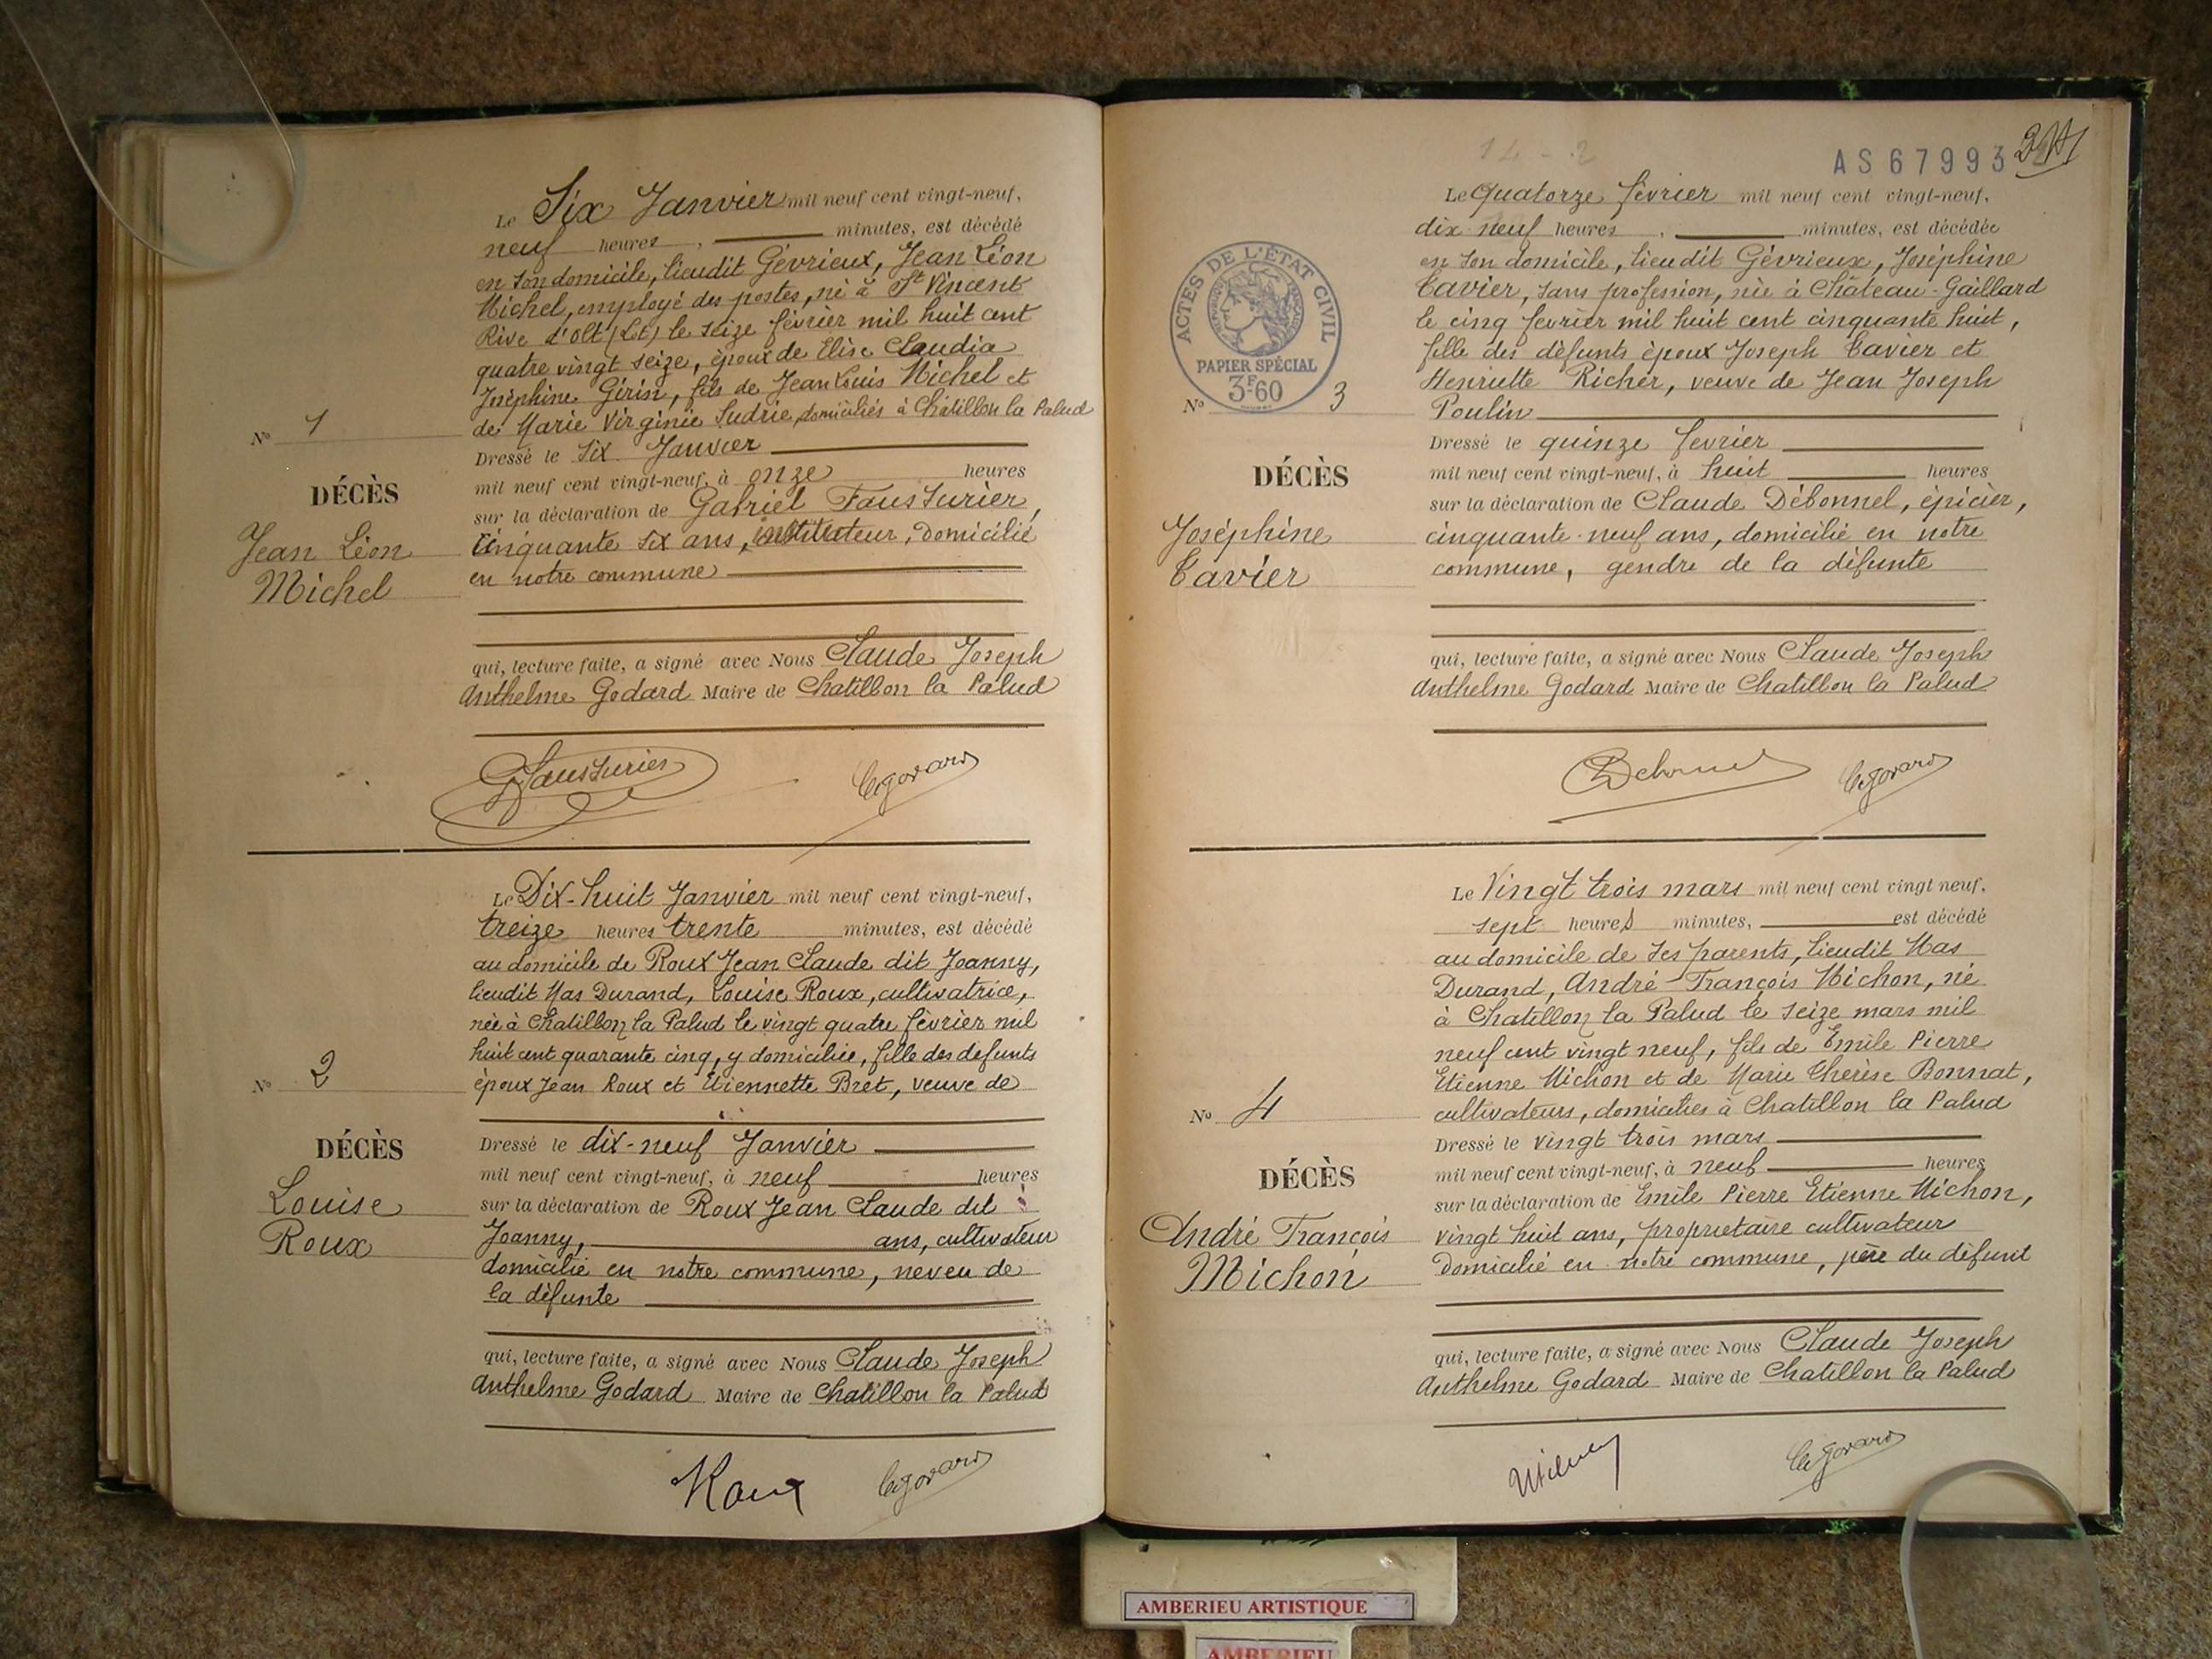 Le Six Janvier mil neuf cent vingt-neuf,
neuf heures, minutes, est décédé
en son domicile, lieudit Gévrieux, Jean Léon
Michel, employé des postes, né à St Vincent
Rive d'Olt (Lot) le seize février mil huit cent
quatre vingt seize, époux de Elise Claudia
Joséphine Girin, fils de Jean Louis Michel et
de Marie Virginie Sudrie, domiciliés à Châtillon la Palud
Dressé le six Janvier
mil neuf cent vingt-neuf, à onze heures
sur la déclaration de Gabriel Fausturier,
cinquante six ans, instituteur, domicilié
en notre commune
qui, lecture faite, a signé avec Nous Claude Joseph
Anthelme Godard Maire de Chatillon la Palud
N° 1
DÉCÈS
Jean Léon
Michel
GFausturier
Le Dix-huit Janvier mil neuf cent vingt-neuf,
treize heures trente minutes, est décédé
au domicile de Roux Jean Claude dit Joanny,
lieudit Mas Durand, Louise Roux, cultivatrice,
née à Chatillon la Palud le vingt quatre février mil
huit cent quarante cinq, y domiciliée, fille des défunts
époux Jean Roux et Etiennette Bret, veuve de
Dressé le dix-neuf Janvier
mil neuf cent vingt-neuf, à neuf heures
sur la déclaration de Roux Jean Claude dit
Joanny, ans, cultivateur
domicilié en notre commune, neveu de
la défunte
qui, lecture faite, a signé avec Nous Claude Joseph
Anthelme Godard Maire de Chatillon la Palud
N° 2
DÉCÈS
Louise
Roux
Roux
AS67993
Le quatorze février mil neuf cent vingt-neuf,
dix neuf heures, minutes, est décédée
en son domicile, lieudit Gévrieux, Joséphine
Tavier, sans profession, née à Château-Gaillard
le cinq février mil huit cent cinquante huit,
fille des défunts époux Joseph Tavier et
Henriette Richer, veuve de Jean Joseph
Poulin
Dressé le quinze fevrier
mil neuf cent vingt-neuf, à huit heures
sur la déclaration de Claude Débonnel, épicier,
cinquante-neuf ans, domicilié en notre
commune, gendre de la défunte
qui, lecture faite, a signé avec Nous Claude Joseph
Anthelme Godard Maire de Chatillon la Palud
ACTES DE L'ÉTAT CIVIL
PAPIER SPÉCIAL
3F60
N° 3
DÉCÈS
Joséphine
Tavier
Le Vingt trois mars mil neuf cent vingt neuf,
sept heures minutes, est décédé
au domicile de ses parents, lieudit Mas
Durand, André François Michon, né
à Chatillon la Palud le seize mars mil
neuf cent vingt neuf, fils de Emile Pierre
Etienne Michon et de Marie Thérèse Bonnat,
cultivateurs, domiciliés à Chatillon la Palud
Dressé le vingt trois mars
mil neuf cent vingt-neuf, à neuf heures
sur la déclaration de Emile Pierre Etienne Michon,
vingt huit ans, propriétaire cultivateur
domicilié en notre commune, père du défunt
qui, lecture faite, a signé avec Nous Claude Joseph
Anthelme Godard Maire de Chatillon la Palud
N° 4
DÉCÈS
André François
Michon
AMBERIEU ARTISTIQUE
AMBERIEU